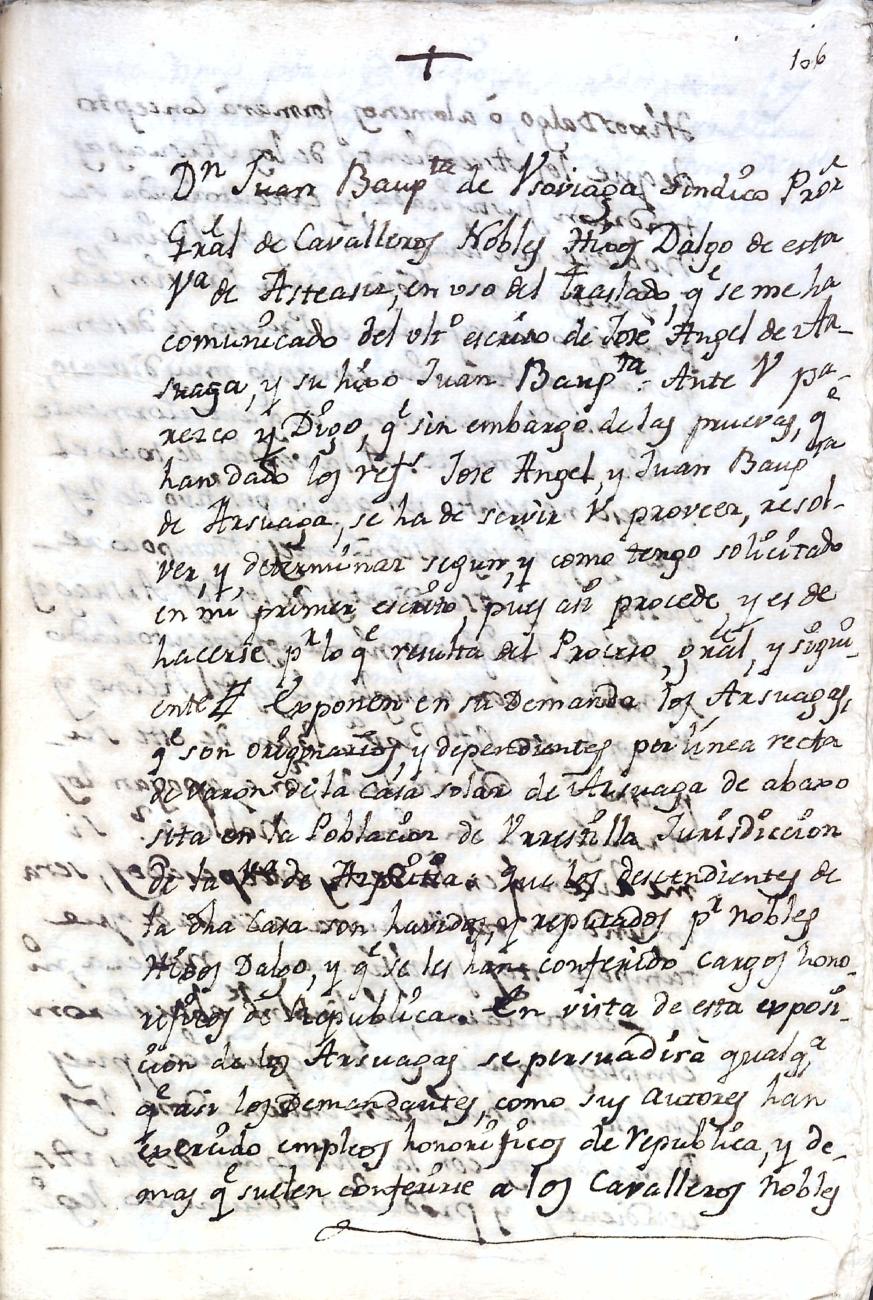 106
Dn Juan Baupta de Vsoviaga, Sindico Pror
Gral de Cavalleros Nobles Hixos Dalgo de esta
Va de Asteasu, en vso del traslado, qe se me ha
comunicado del vlto escrito de José Angel de Ar-
suaga, y su hixo Juan Baupta: Ante V pa-
rezco y Digo, qe sin embargo de las pruevas, qe
han dado los refs José Angel, y Juan Baupta
de Arsuaga, se ha de servir V. proveer, resol-
ver, y determinar segun, y como tengo solicitado
en mi primer escrito, pues asi procede y es de
hacerse pr lo qe resulta del Proceso, gral, y sigui-
ente # Exponen en su Demanda los Arsuagas,
qe son originarios, y dependientes por línea recta
de varon de la Casa solar de Arsuaga de abaxo
sita en la Poblacion de Vrrestilla Jurisdiccion
de la Va de Azpeitia: que los descendientes de
la dha Casa son havidos, y reputados pr Nobles
Hixos Dalgo, y qe se les han conferido cargos hono-
rificos de Republica. En vista de esta exposi-
cion de los Arsuagas se persuadirà qualqa
qe asi los Demandantes, como sus autores han
exercido empleos honorificos de Republica, y de-
mas qe suelen conferirse a los Cavalleros Nobles